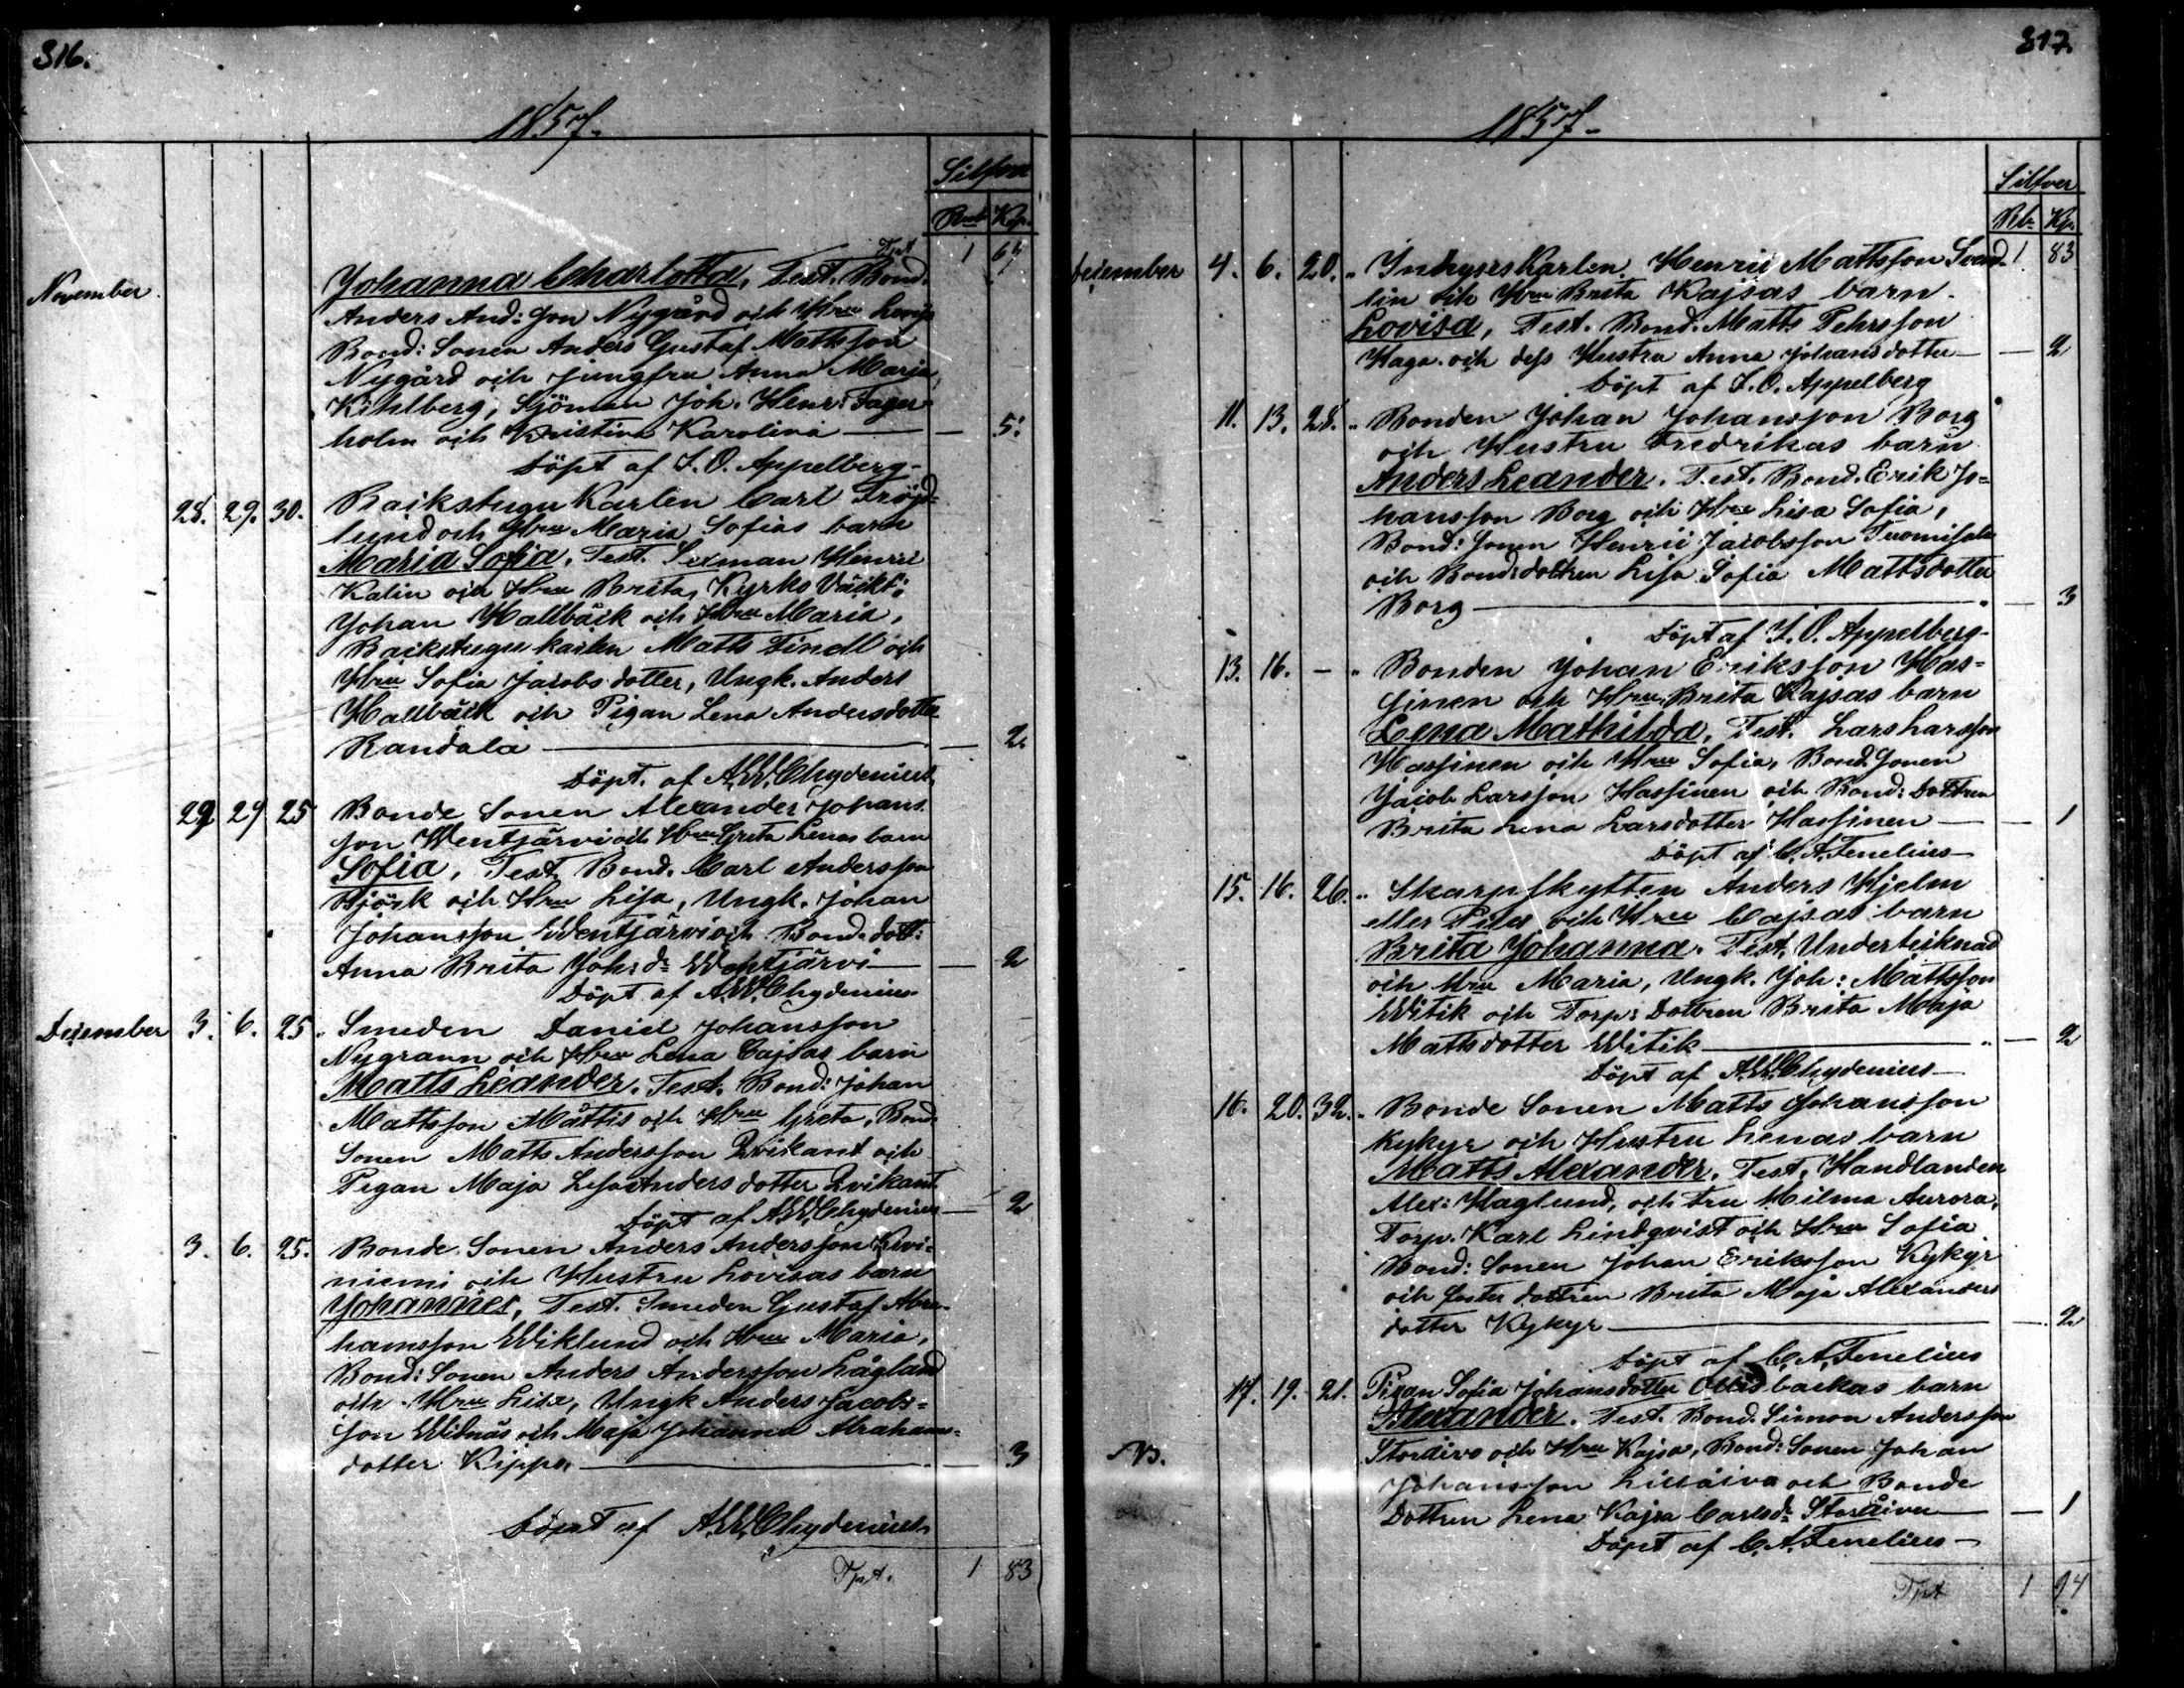 316.
1857.
Silfver
Rub Kop.
Tpt 1 67
November Johanna Charlotta, Test. Bond.
Anders And:son Nygård och Hru Lovisa
Bond: Sonen Anders Gustaf Mattsson
Nygård och Jungfru Anna Maria
Kihlberg, Sjöman Joh. Henr: Fager-
holm och Kristina Karolina — — 5.
Döpt af I. O. Appelberg-
28. 29. 30. Backstugu Karlen Carl Fröjd-
lund och Hru Maria Sofias barn
Maria Sofia. Test. Sexman Henric
Kalin och Hru Brita, Kyrko Väckt:
Johan Hallbäck och Hru Maria,
Backstugu karlen Matts Lindl och
Hru Sofia Jacobsdotter, Ungk. Anders
Hallbäck och Pigan Lena Andersdotter
Randala — — 2
Döpt. af A.W. Chydenius.
29 24 25 Bonde Sonen Alexander Johans
son Wentjärvi och Hru Greta Lenas barn
Sofia, Test. Bond. Carl Andersson
Björk och Hru Lisa, Ungk. Johan
Johansson Wentjärvi och Bond. dott:
Anna Brita Joh:sdr Wentjärvi — — 2
Döpt af A.W. Chydenius
December 3. 6. 25. Smeden Daniel Johansson
Nygrann och Hru Lena Cajsas barn
Matts Leander. Test. Bond: Johan
Mattsson Mattis och Hru Greta, Bond.
Sonen Matts Andersson Qvikant och
Pigan Maja Lisa Andersdotter Qvikant
Döpt af A.W. Chydenius — 2
3. 6. 25. Bonde Sonen Anders Andersson Kivi-
niemi och Hustru Lovisas barn
Johannes, Test. Smeden Gustaf Abra-
hamsson Wiklund och Hru Maria,
Bond: Sonen Anders Andersson Lågland
och Hru Lisa, Ungk Anders Jacobs-
son Widnäs och Maja Johanna Abrahams-
dotter Kippo. — — 3
Döpt af A.W. Chydenius
Tpt. 1 83
317.
1857.
Silfver
Rb. Kp.
December 4. 6. 20. " Inhyses Karlen Henric Mattsson Svad- 1 83
lin och Hru Brita Kajsas barn
Lovisa, Test. Bond. Matts Pehrsson
Haga och dess Hustru Anna Johansdotter — — 2
Döpt af I. O. Appelberg
11. 13. 28. " Bonden Johan Johansson Borg
och Hustru Fredrikas barn
Anders Leander. Test. Bond. Erik Jo-
hansson Borg och Hru Lisa Sofia,
Bond: Sonen Henric Jacobsson
och Bond:dottren Lisa Sofia Mattsdotter
Borg — — 3
Döpt af I. O. Appelberg-
13. 16. — " Bonden Johan Eriksson Has-
sinen och Hru Brita Kajsas barn
Lena Mathilda, Test. Lars Larsson
Hassinen och Hru Sofia, Bond. Sonen
Jacob Larsson Hassinen och Bond: Dottren
Brita Lena Larsdotter Hassinen — — 1
Döpt af C. A. Fenelius —
15. 16. 26. " Skarpskytten Anders Hjelm
eller Pila och Hru Cajsas barn
Brita Johanna. Test. Underteiknad
och Hru Maria, Ungk. Joh: Mattsson
Witik och Torp: Dottren Brita Maja
Mattsdotter Witik — — 2
Döpt af A.W. Chydenius —
16. 20. 32. " Bonde Sonen Matts Johansson
Kykyr och Hustru Lenas barn
Matts Alexander. Test, Handlanden
Alex: Haglund, och Fru Hilma Aurora,
Torp. Karl Lindqvist och Hru Sofia
Bond: Sonen Johan Eriksson Kykyr
och foster dottren Brita Maja Alexanders
dotter Kykyr — — 2
Döpt af C. A. Fenelius
17. 19. 21. Pigan Sofia Johansdotter Ollisbackas barn
Alexander. Test. Bond. Simon Andersson
Storåivo och Hru Kajsa, Bond: Sonen Johan
Johansson Lillåiva och Bonde
Dottren Lena Kajsa Carlsdr Storåiva — — 1
Döpt af C. A. Fenelius —
Tpt 1 94